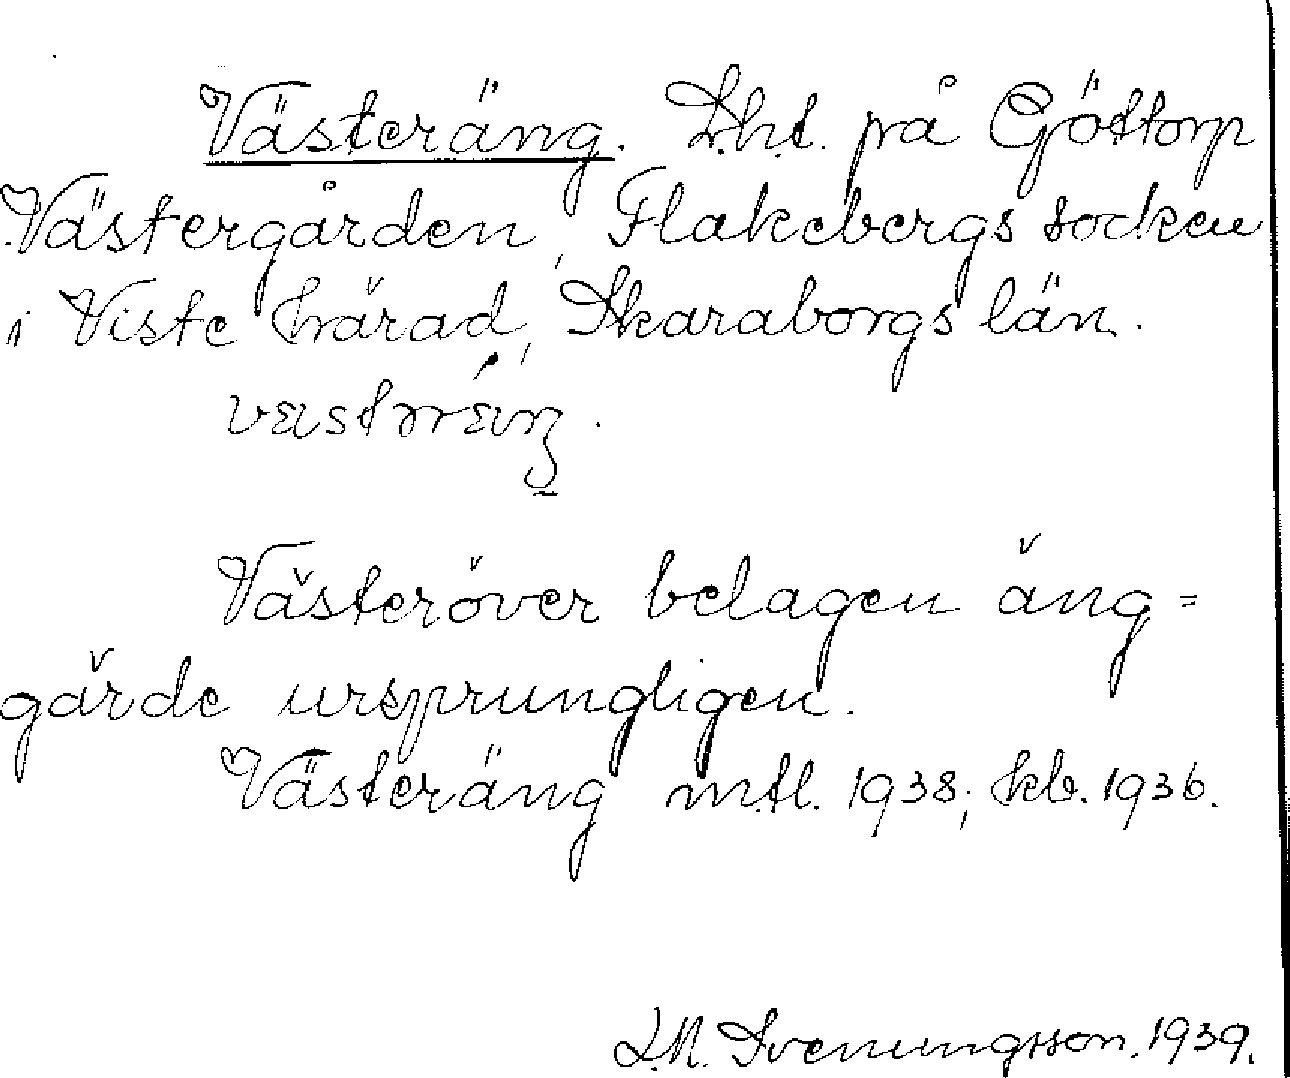 Västeräng. Lht. på Göttorp
Västergården, Flakebergs socken
i Viste härad, Skaraborgs län.
Västeröver belagen äng=
gärde ursprungligen.
Västeräng mtl. 1938; kb. 1936.
S.M. Svenungsson. 1939.